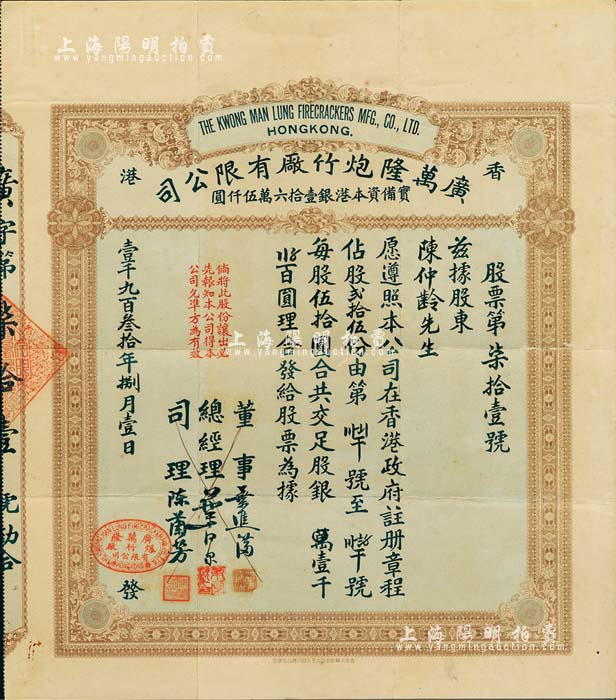 上海陽明拍賣
www.yangmingauction.com
THE KWONG MAN LUNG FIRECRACKERS MFG., CO., LTD.
HONGKONG.
香港
廣萬隆炮竹廠有限公司
實備資本港銀壹拾六萬伍仟圓
股票第柒拾壹號
茲據股東
陳仲齡先生
愿遵照本公司在香港政府註册章程
佔股弍拾伍份由第號至號
每股伍拾圓合共交足股銀萬壹千
百圓理合發給股票為據
倘將此股份讓出必
先報知本公司得本
公司允準方為有效
壹千九百叁拾年捌月壹日
發
董事
總經理
司理陳蘭芳
廣萬隆
爆竹廠
有限公司
廣字第柒拾壹號
上海陽明拍賣
www.yangmingauction.com
上海陽明拍賣
www.yangmingauction.com